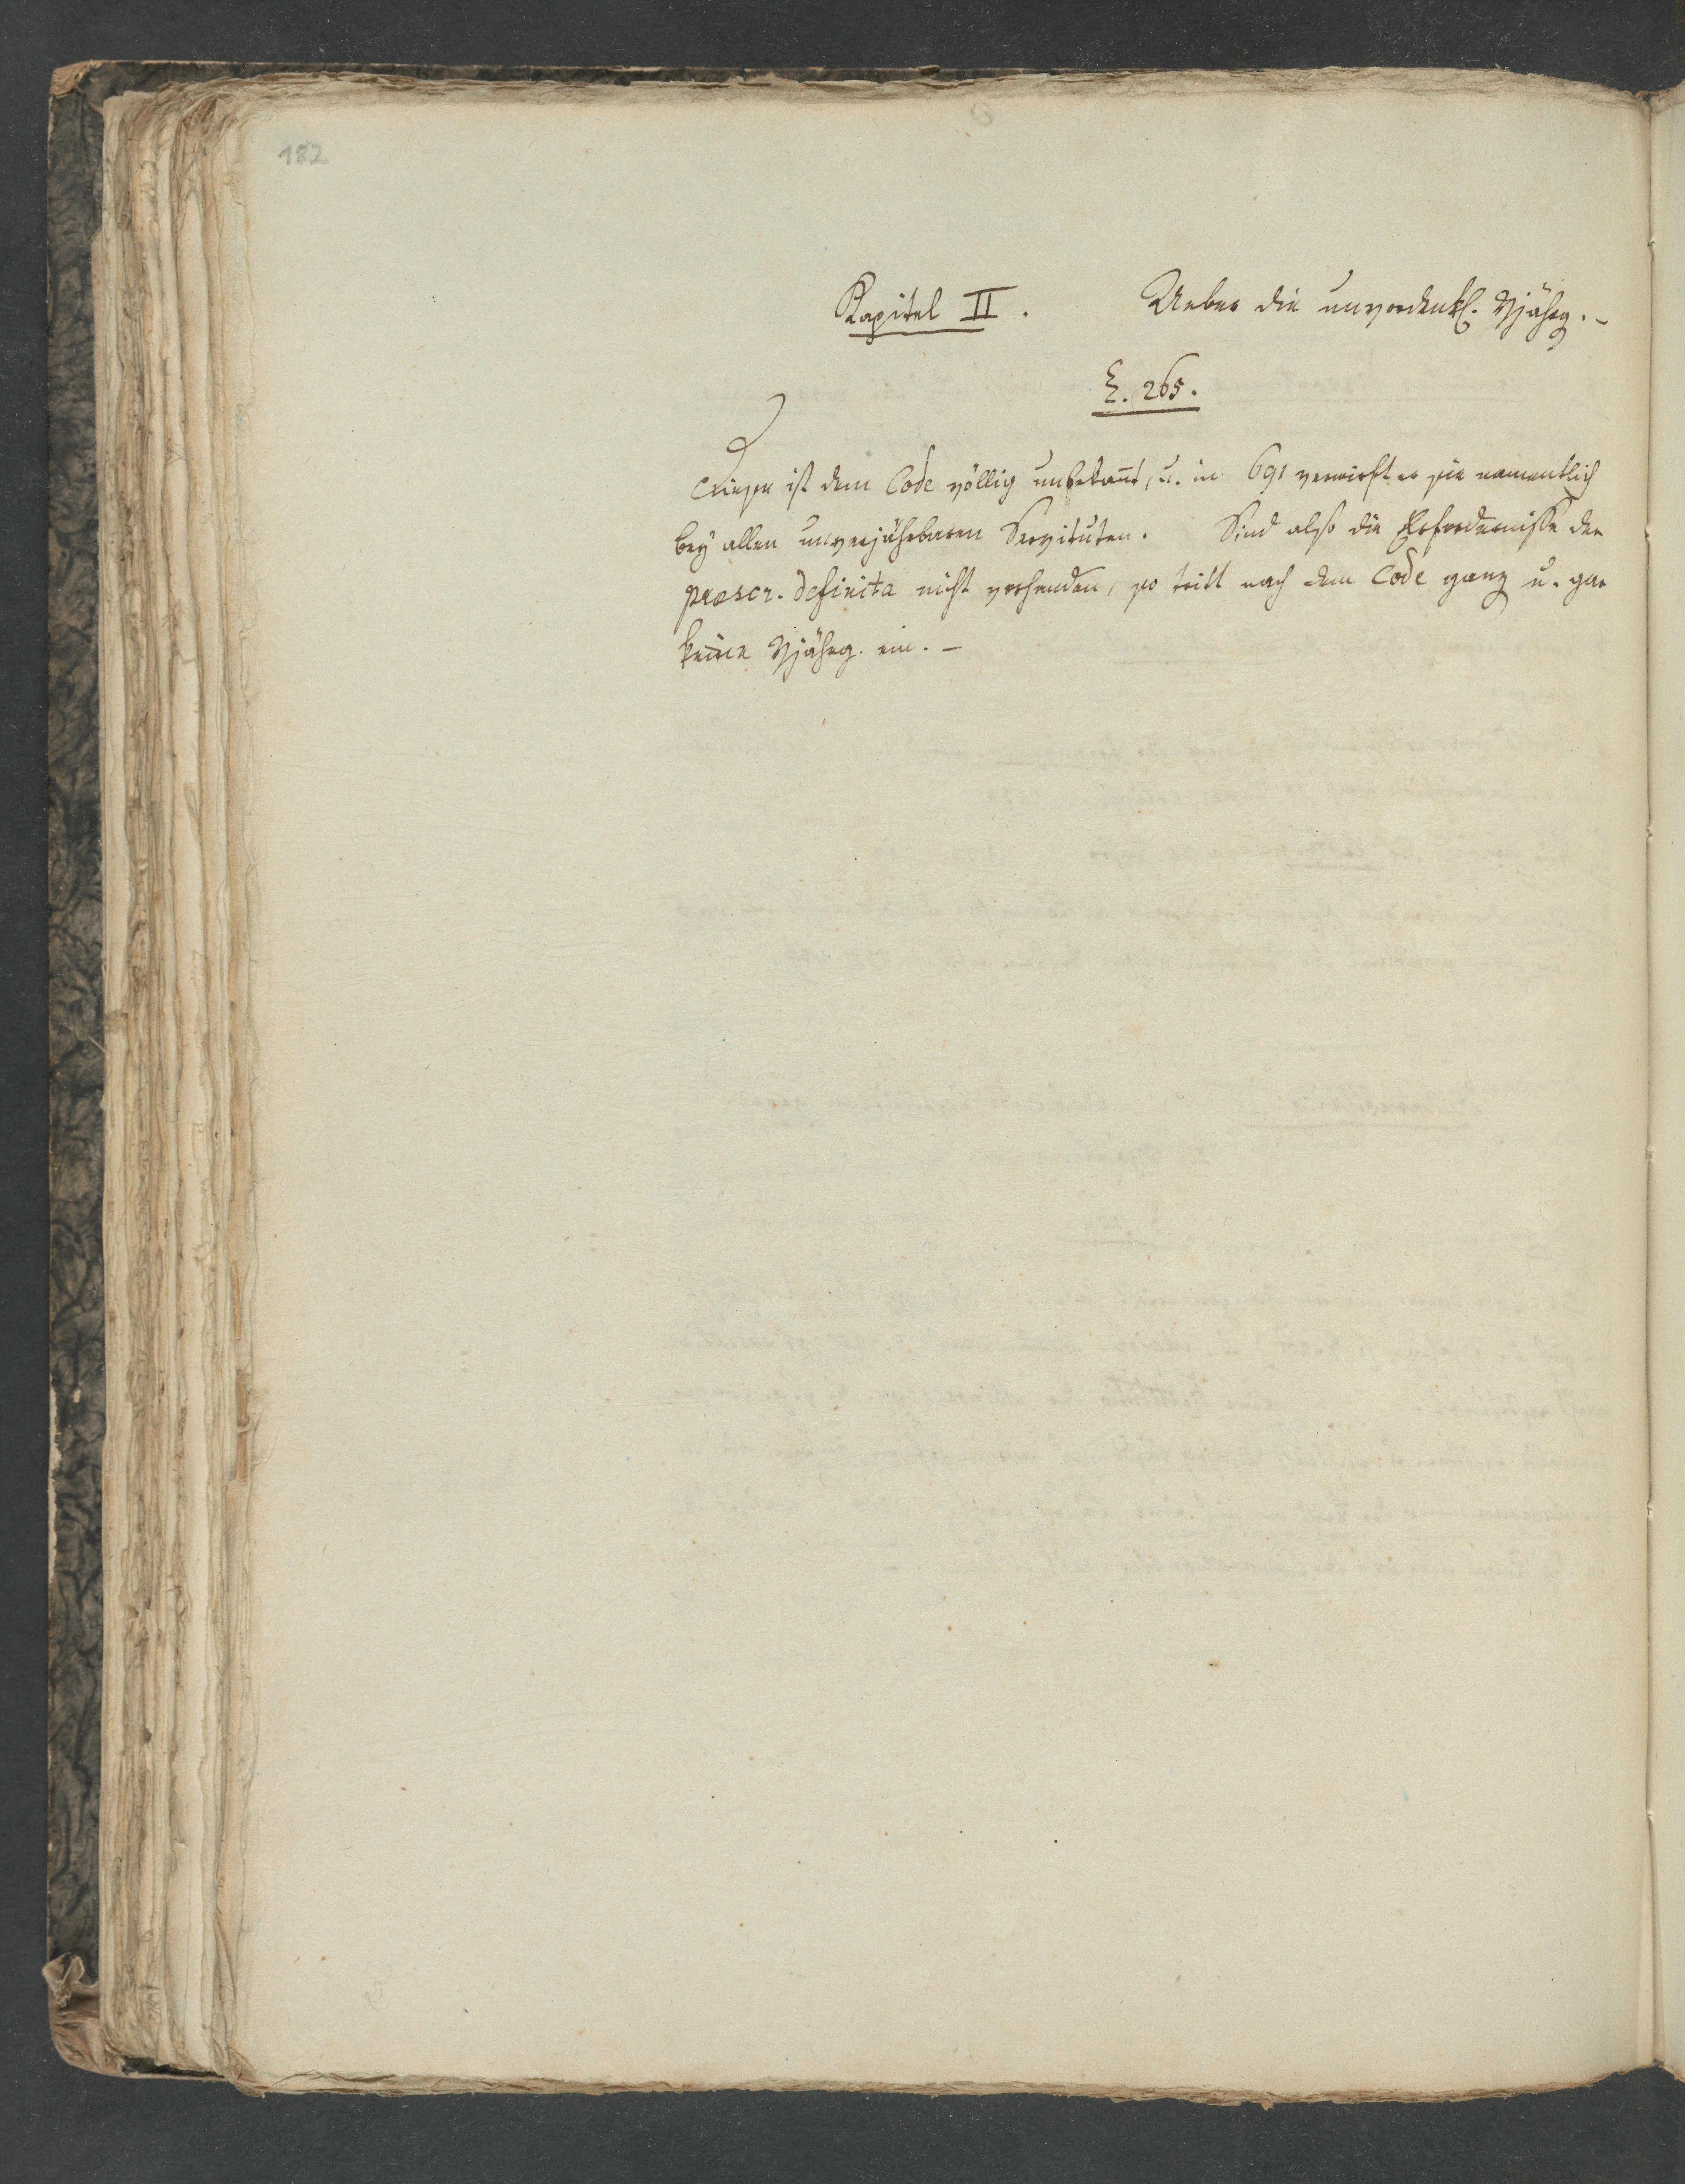 182
Kapitel II. Ueber die unvordenkl. Vjährg. –
§. 265.
Diese ist dem Code völlig unbekan̄t, u. in 691 verwirft er sie namentlich
bey allen unverjährbaren Servituten. Sind also die Erfordernisse der
praescr. definita nicht vorhanden, so tritt nach dem Code ganz u. gar
keine Vjährg. ein. –